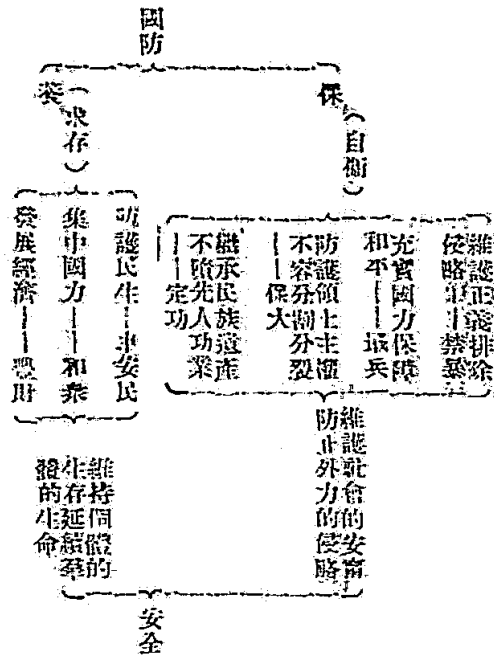 國防
保
（自衛）
維護正義排除
侵略——禁暴
充實國力保障
和平——戢兵
防護領土主權
不容分割分裂
——保大
繼承民族遺產
不隳先人功業
——定功
維護社會的安甯
防止外力的侵略
養
（求存）
民生——安民
集中國力——和衆
發展經濟——豐財
維持個體的
生存延續羣
體的生命
安全